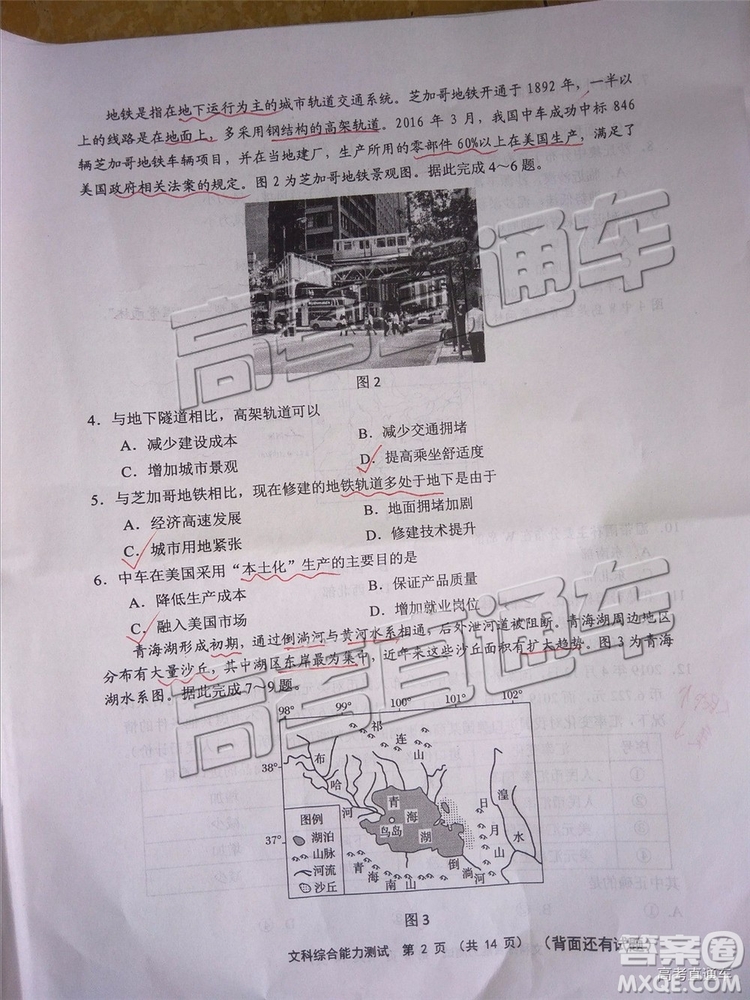 地铁是指在地下运行为主的城市轨道交通系统。芝加哥地铁开通于 1892 年，一半以
上的线路是在地面上，多采用钢结构的高架轨道。2016 年 3 月，我国中车成功中标 846
辆芝加哥地铁车辆项目，并在当地建厂，生产所用的零部件 60%以上在美国生产，满足了
美国政府相关法案的规定。图 2 为芝加哥地铁景观图。据此完成 4～6 题。
图 2
4．与地下隧道相比，高架轨道可以
A．减少建设成本 B．减少交通拥堵
C．增加城市景观 D．提高乘坐舒适度
5．与芝加哥地铁相比，现在修建的地铁轨道多处于地下是由于
A．经济高速发展 B．地面拥堵加剧
C．城市用地紧张 D．修建技术提升
6．中车在美国采用“本土化”生产的主要目的是
A．降低生产成本 B．保证产品质量
C．融入美国市场 D．增加就业岗位
青海湖形成初期，通过倒淌河与黄河水系相通，后外泄河道被阻断。青海湖周边地区
分布有大量沙丘，其中湖区东岸最为集中，近年来这些沙丘面积有扩大趋势。图 3 为青海
湖水系图。据此完成 7～9 题。
98° 99° 100° 101° 102°
38°
37°
祁连山
布哈河
青海湖
鸟岛
日月山
湟水
倒淌河
青海南山
图例
湖泊
山脉
河流
沙丘
图 3
文科综合能力测试 第 2 页 （共 14 页） （背面还有试题）
高考直通车
高考直通车
答案圈
高考直通车
MXQE.COM